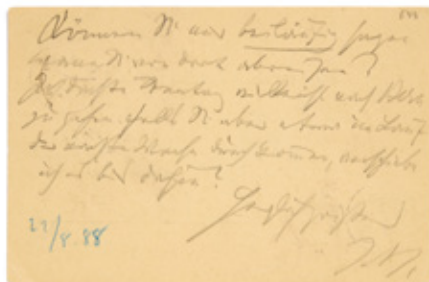 Können Sie mir beiläufig sagen
wann Sie von dort abreisen?
Ich dachte Montag vielleicht nach
zu gehen falls Sie aber etwa im Lauf
der nächsten Woche durchkommen, verschiebe
ich es bis dahin?
Herzlich grüßend
22/8.88